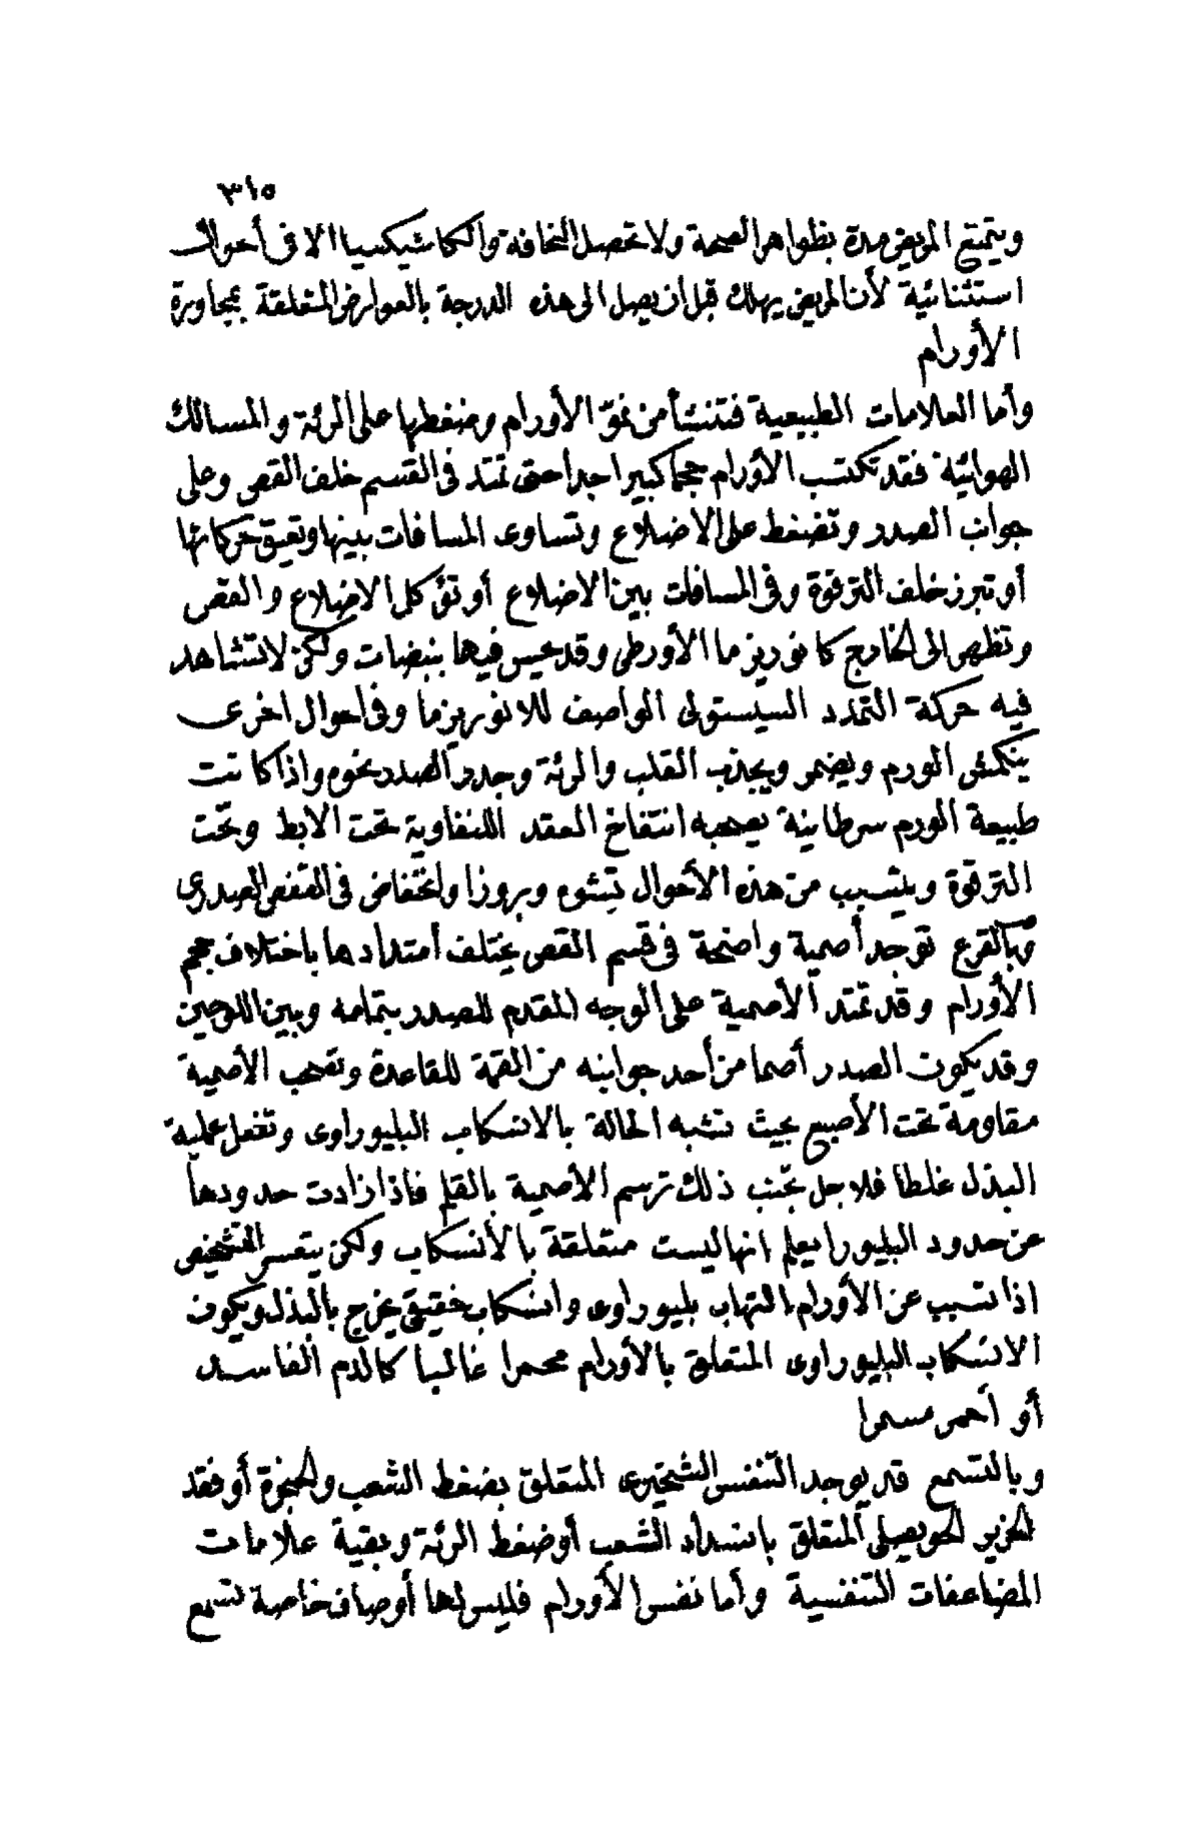 ٣١٥
ويتمتع المريض مدة بظواهر الصحة ولا تحصل النحافة والكاشيكسيا الا فى أحوال
استثنائية لأن المريض يهلك قبل ان يصل الى هذه الدرجة بالعوارض المتعلقة بمجاورة
الأورام
وأما العلامات الطبيعية فتنشأ من نموّ الأورام وضغطها على الرئة والمسالك
الهوائية فقد تكتسب الأورام حجما كبيرا جدا حتى تمتد فى القسم خلف القص وعلى
جوانب الصدر وتضغط على الاضلاع وتساوى المسافات بينها وتعيق حركاتها
أو تبرز خلف الترقوة وفى المسافات بين الاضلاع أو تؤكل الاضلاع والقص
وتظهر الى الخارج كانوريزما الأورطى وقد يحس فيها بنبضات ولكن لا تشاهد
فيه حركة التمدد السيستولى الواصف للانوريزما وفى احوال اخرى
ينكمش الورم ويضمر ويجذب القلب والرئة وجدر الصدر نحوه واذا كانت
طبيعة الورم سرطانية يصحبه انتفاخ العقد اللنفاوية تحت الابط وتحت
الترقوة ويتسبب من هذه الأحوال تشوه وبروزا وانخفاض فى القفص الصدرى
وبالقرع توجد أصمية واضحة فى قسم القص يختلف أمتدادها باختلاف حجم
الأورام وقد تمتد الأصمية على الوجه المقدم للصدر بتمامه وبين اللوحين
وقد يكون الصدر أصما من أحد جوانبه من القمة للقاعدة وتصحب الأصمية
مقاومة تحت الأصبع بحيث تشبه الحالة بالانسكاب البليوراوى وتفعل عملية
البذل غلطا فلاجل تجنب ذلك ترسم الأصمية بالقلم فاذا زادت حدودها
عن حدود البليورا يعلم انها ليست متعلقة بالأنسكاب ولكن يتعسر التشخيص
اذا تسبب عن الأورام التهاب بليوراوى وانسكاب حقيقى يخرج بالبذل ويكون
الانسكاب البليوراوى المتعلق بالأورام محمرا غالبا كالدم الفاسد
أو أحمر مسمرا
وبالتسمع قد يوجد التنفس الشخيرى المتعلق بضغط الشعب والحنجرة أو فقد
الخرير الحويصلى المتعلق بانسداد الشعب أو ضغط الرئة وبقية علامات
المضاعفات التنفسية وأما نفس الأورام فليس لها أوصاف خاصة تسمع